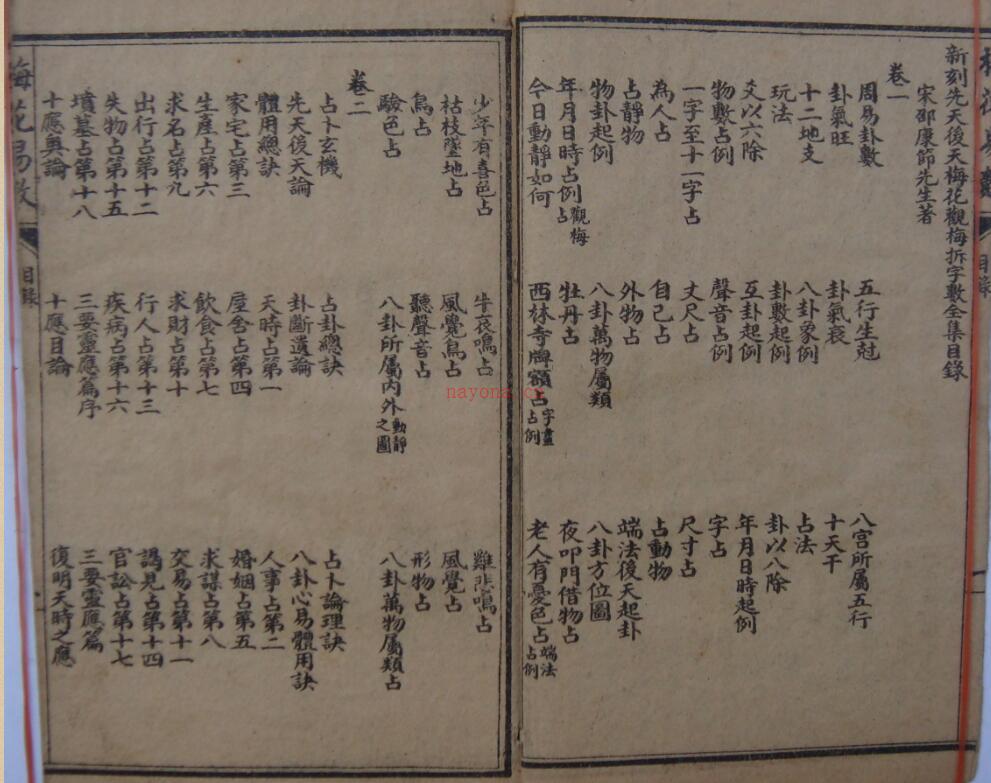 新刻先天後天梅花觀梅拆字數全集目錄
宋邵康節先生著
卷一
周易卦數 五行生尅 八宮所屬五行
卦氣旺 卦氣衰 十天干
十二地支 八卦象例 占法
玩法 卦數起例 卦以八除
爻以六除 互卦起例 年月日時起例
物數占例 聲音占例 字占
一字至十一字占 丈尺占 尺寸占
為人占 自己占 占動物
占靜物 外物占 端法後天起卦
物卦起例 八卦萬物屬類 八卦方位圖
年月日時占例觀梅占 牡丹占 夜叩門借物占
今日動靜如何 西林寺牌額占字畫占例 老人有憂色占端法占例
少年有喜色占 牛哀鳴占 雞悲鳴占
枯枝墜地占 風覺鳥占 風覺占
鳥占 聽聲音占 形物占
驗色占 八卦所屬內外動靜之圖 八卦萬物屬類占
卷二
占卜玄機 占卦總訣 占卜論理訣
先天後天論 卦斷遺論 八卦心易體用訣
體用總訣 天時占第一 人事占第二
家宅占第三 屋舍占第四 婚姻占第五
生產占第六 飲食占第七 求謀占第八
求名占第九 求財占第十 交易占第十一
出行占第十二 行人占第十三 謁見占第十四
失物占第十五 疾病占第十六 官訟占第十七
墳墓占第十八 三要靈應篇序 三要靈應篇
十應奧論 十應目論 復明天時之應
梅花易數
目錄
目錄
nayona.cn